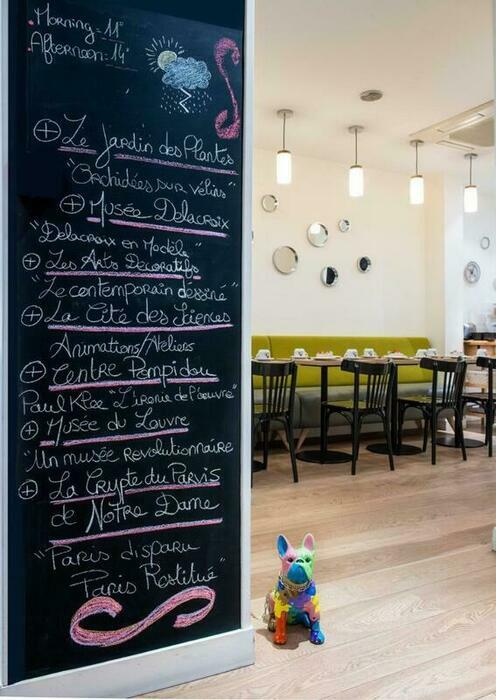 Morning = 11°
Afternoon = 14°
Le Jardin des Plantes
"Orchidées sur vélins"
Musée Delacroix
"Delacroix en Modèle"
Les Arts Décoratifs
"Le contemporain dessiné"
La Cité des Sciences
Animations/Ateliers
Centre Pompidou
Paul Klee "L'ironie de l'oeuvre"
Musée du Louvre
"Un musée Revolutionnaire
La Crypte du Parvis
de Notre Dame
"Paris disparu
Paris Restitué"